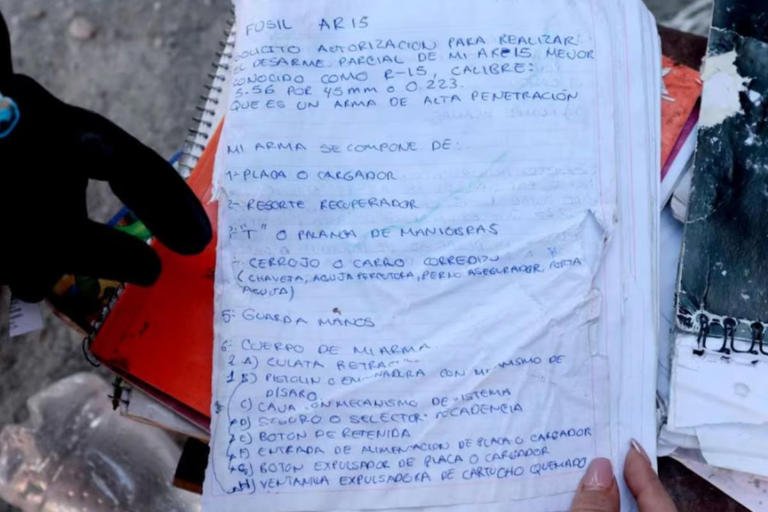 FUSIL AR15
SOLICITO AUTORIZACION PARA REALIZAR
EL DESARME PARCIAL DE MI AR15, MEJOR
CONOCIDO COMO R-15, CALIBRE:
5.56 POR 45mm O 0.223.
QUE ES UN ARMA DE ALTA PENETRACIÓN
MI ARMA SE COMPONE DE:
1- PLACA O CARGADOR
2- RESORTE RECUPERADOR
3- "T" O PALANCA DE MANIOBRAS
- CERROJO O CARRO CORREDIZO
(CHAVETA, AGUJA PERCUTORA, PERNO ASEGURADOR, PORTA
AGUJA)
5- GUARDA MANOS
6- CUERPO DE MI ARMA
2 A) CULATA
1 B) PISTOLIN O CON DE
DISARO
C) CAJA CON MECANISMO DE
D) SEGURO O SELECTOR
E) BOTON DE RETENIDA
F) ENTRADA DE ALIMENTACION DE PLACA O CARGADOR
G) BOTON EXPULSADOR DE PLACA O CARGADOR
H) VENTANILLA EXPULSADORA DE CARTUCHO QUEMADO